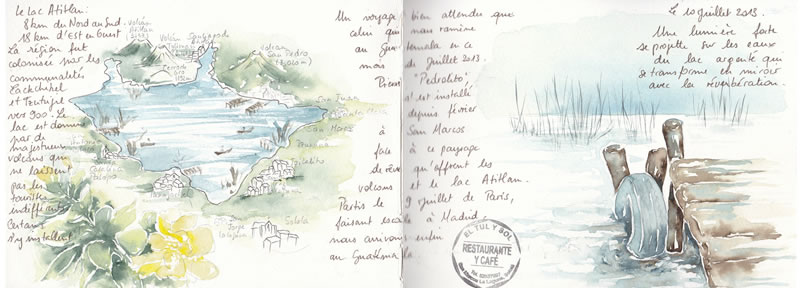 Le lac Atitlan:
8 km du Nord au Sud.
18 km d'est en ouest
La région fut
colonisée par les
communautés
Cackchikel
et Tzutujil
vers 900. Le
lac est dominé
par de
majestueux
volcans qui
ne laissent
pas les
touristes
indifférents.
Certains
s'y installent
volcán
Atitlán
volcán
Tolimán
Santiago de
volcan
San Pedro
San Juan
San Marcos
Tzununa
Jaibalito
Santa
Catarina
Palopo
Jorge
la laguna
Solola
Un voyage bien attendu que
celui qui nous ramène
au Guatemala en ce
mois de juillet 2013.
Pierre "Pedrolito",
s'est installé
depuis février
à San Marcos
face à ce paysage
de rêve qu'offrent les
volcans et le lac Atitlan.
Partis le 9 juillet de Paris,
faisant escale à Madrid,
nous arrivons enfin
au Guatemala
EL TUL Y SOL
RESTAURANTE
Y CAFÉ
Le 10 juillet 2013.
Une lumière forte
se projette sur les eaux
du lac argenté qui
se transforme en miroir
avec la réverbération.